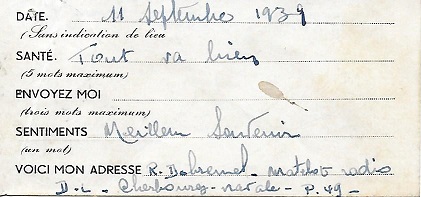 DATE. 11 Septembre 1939
(Sans indication de lieu
SANTÉ. Tout va bien
(5 mots maximum)
ENVOYEZ MOI
(trois mots maximum)
SENTIMENTS Meilleur Souvenir
(un mot)
VOICI MON ADRESSE R. matelot radio
D.L. - Cherbourg - navale - P. 49 -